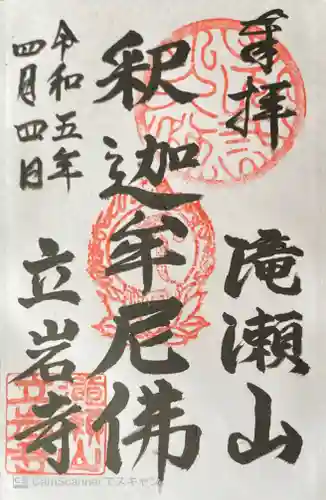 奉拝
滝瀬山
釈迦牟尼佛
令和五年
四月四日
立岩寺
CamScanner でスキャン